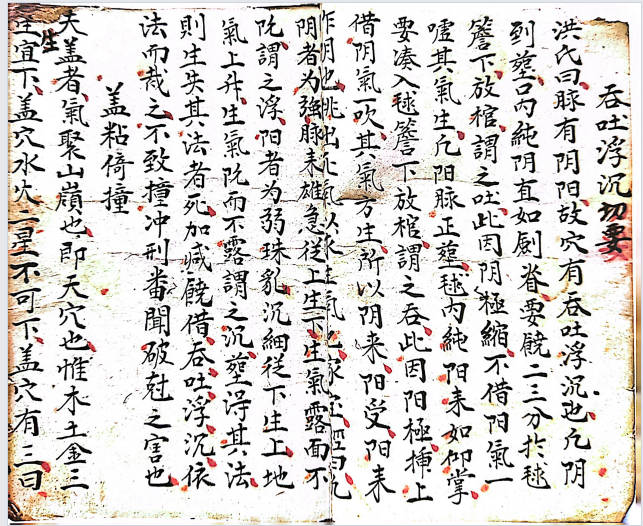 吞吐浮沉切要
洪氏曰脉有阴阳故穴有吞吐浮沉也凡阴
到塟口内純阴直如劍脊要饒二三分扵毬
簷下放棺謂之吐此因阴極縮不借阳氣一
嘘其氣生凡阳脉正塟毬内純阳来如仰掌
要湊入毬簷下放棺謂之吞此因阳極揷上
借阴氣一吹其氣方生所以阴来阳受阳来
阴者为强脉来雄急従上生下生氣露面不
阮謂之浮阳者为弱珠𧴀沉細従下生上地
氣上升生氣阮而不露謂之沉塟淂其法
則生失其法者死加减饒借吞吐浮沉依
法而裁之不致撞冲刑畨聞破尅之害也
盖粘倚撞
天盖者氣聚山嶺也即天穴也惟木土金三
生
宜下盖穴水火二星不可下盖穴有三曰